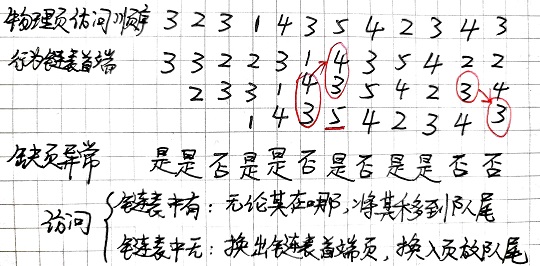 物理页访问顺序 3 2 3 1 4 3 5 4 2 3 4 3
行为链表首端 3 3 2 2 3 1 4 3 5 4 2 2
2 3 3 1 4 3 5 4 2 3 4
1 4 3 5 4 2 3 4 3
缺页异常 是 是 否 是 是 否 是 否 是 是 否 否
访问 { 链表中有: 无论其在哪,将其移到队尾
链表中无: 换出链表首端页, 换入页放队尾